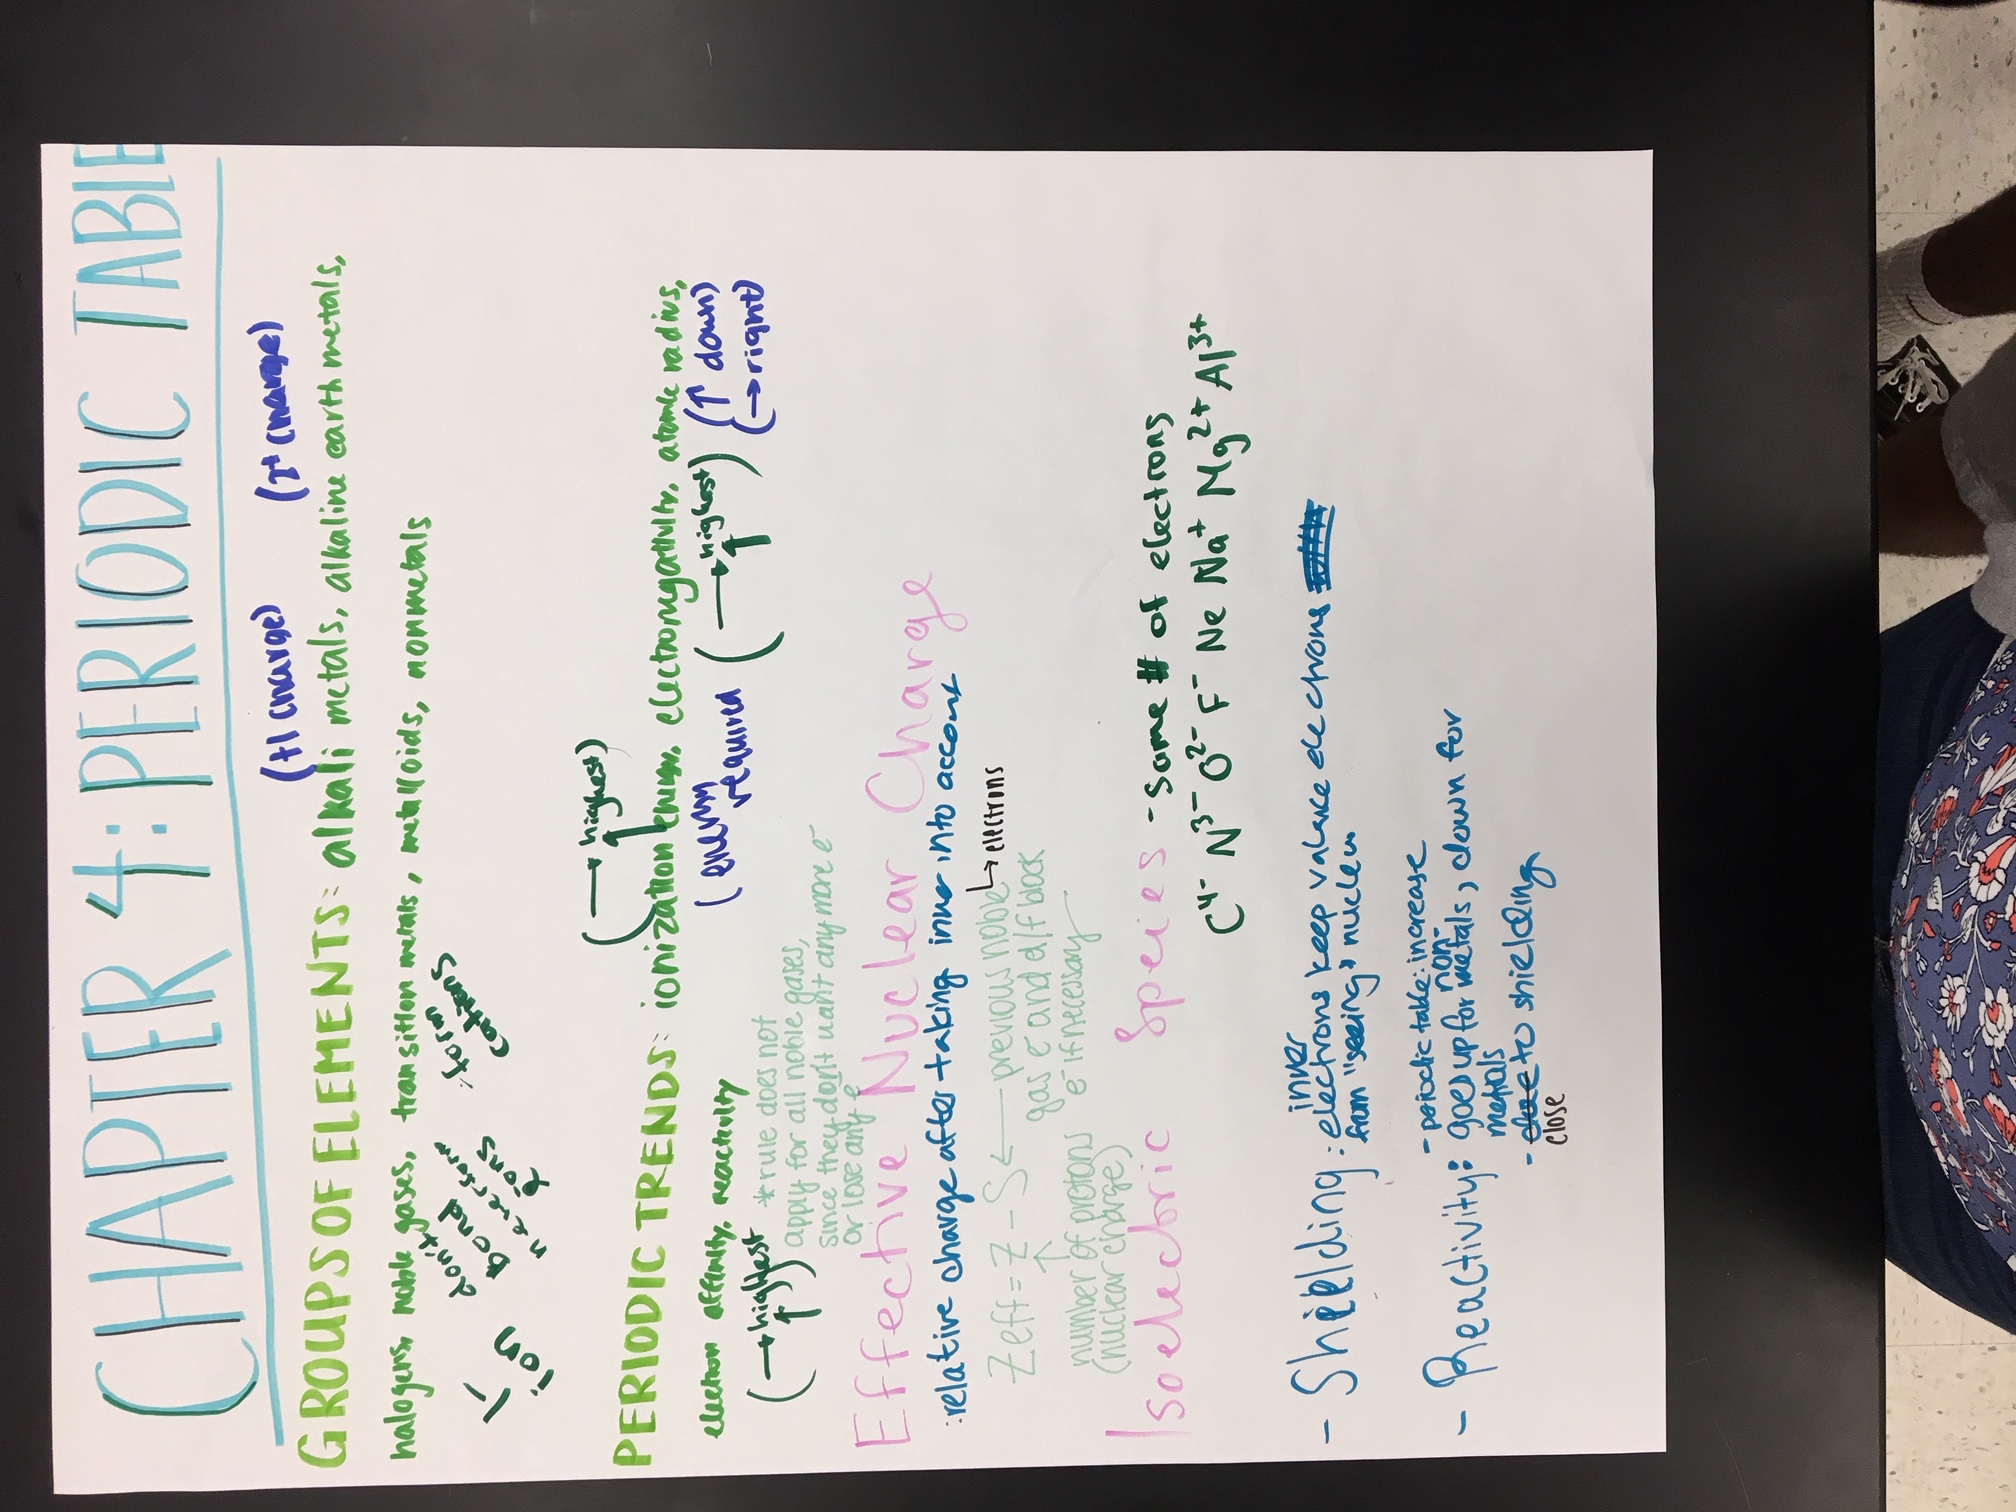 CHAPTER 4: PERIODIC TABLE
(+1 charge)
GROUPS OF ELEMENTS: alkali metals, alkaline earth metals,
halogens, noble gases, transition metals, metalloids, nonmetals
-1
ion
don't form
bond
: form
cations
(→ highest)
↑
PERIODIC TRENDS: ionization energy, electronegativity, atomic radius,
electron affinity, reactivity
(energy required)
(→ highest)
↑
(↑ down)
(→ right)
(→ highest)
↑
*rule does not
apply for all noble gases,
since they don't want any more e⁻
or lose any e
Effective Nuclear Charge
:relative charge after taking inner into account
↳ electrons
Zeff = Z - S ← previous noble
gas e⁻ and d/f block
e⁻ if necessary
↑
number of protons
(nuclear charge)
Isoelectric Species - Same # of electrons
C⁴⁻ N³⁻ O²⁻ F⁻ Ne Na⁺ Mg²⁺ Al³⁺
inner
- Shielding: electrons keep valance electrons
from "seeing" nucleu
- periodic table: increase
non-
- Reactivity: goes up for metals, down for
metals
- due to shielding
close